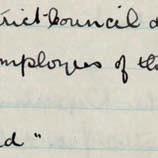 trict Council
employees of the
d"